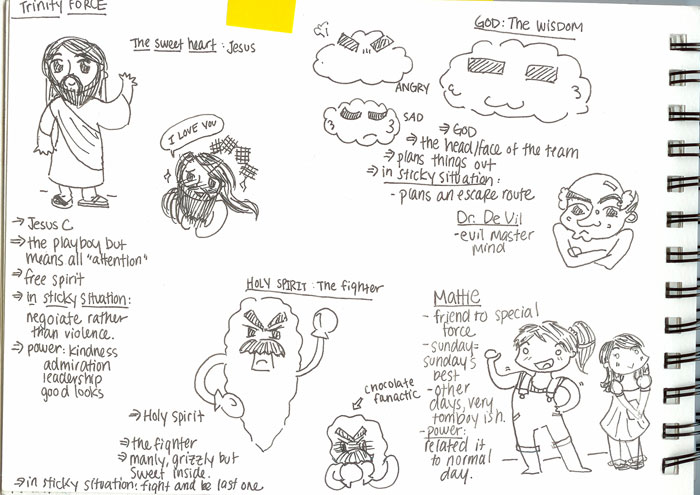 Trinity FORCE
The sweet heart : Jesus
I LOVE YOU
→ Jesus C
⇒ the playboy but
means all "attention"
⇒ free spirit
⇒ in sticky situation:
negoiate rather
than violence.
⇒ power: kindness
admiration
leadership
good looks
GOD: The WISDOM
ANGRY
SAD
⇒ GOD
⇒ the head/face of the team
⇒ plans things out
⇒ in sticky situation:
- plans an escape route
Dr. De Vil
- evil master
mind
HOLY SPIRIT : The fighter
→ Holy Spirit
⇒ the fighter
⇒ manly, grizzly but
sweet inside.
⇒ in sticky situation: fight and be last one
chocolate
fanactic
Mattie
- friend to special
force
- sunday =
sunday's
best
- other
days, very
tomboy ish.
- power:
related it
to normal
day.